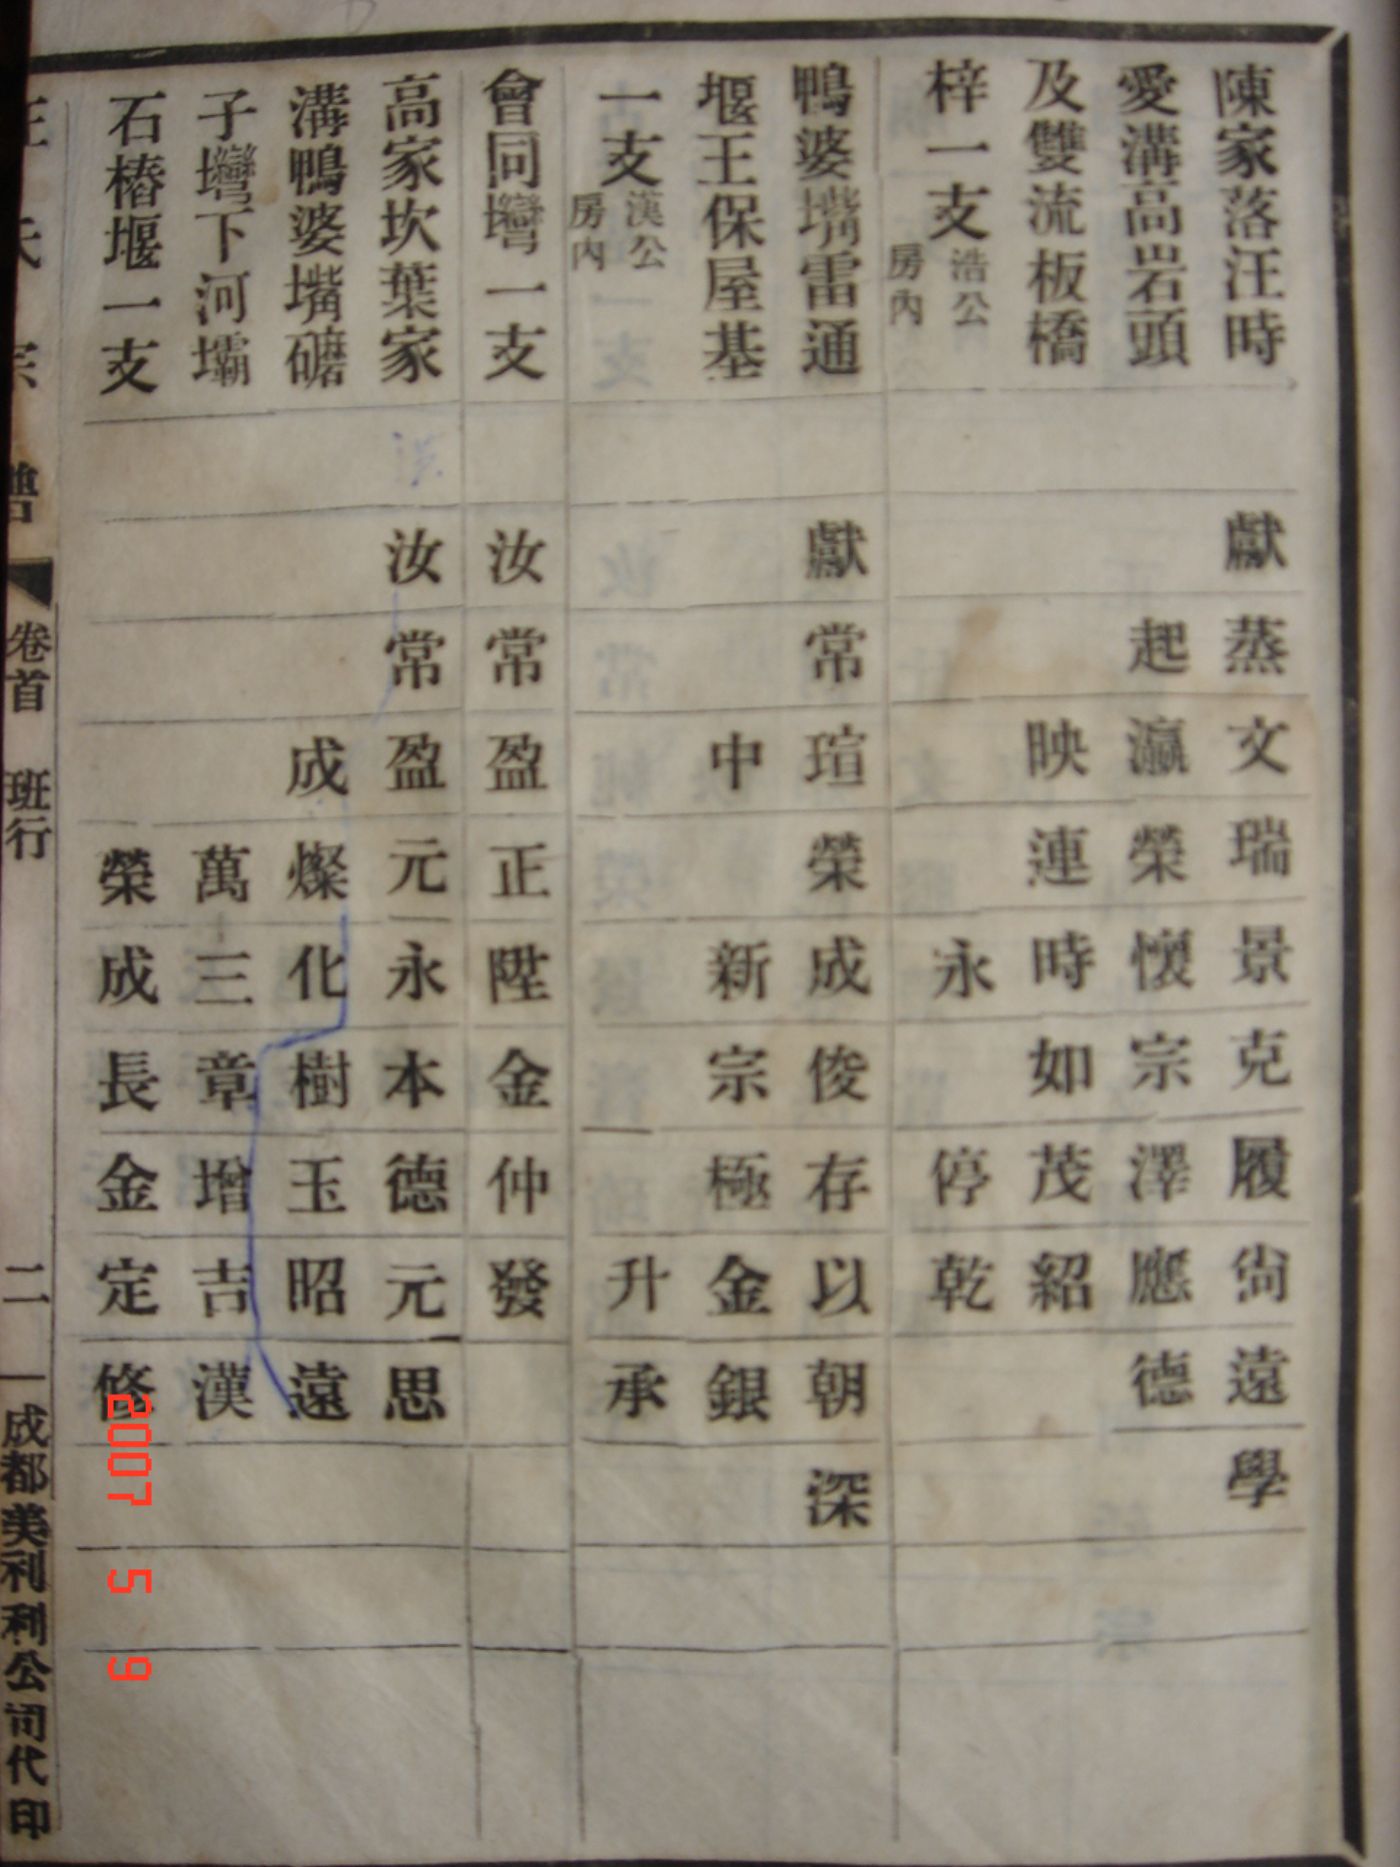 陳家落汪時
愛溝高岩頭
及雙流板橋
梓一支 浩公房內
獻蒸文瑞景克履尙遠學
起瀛榮懷宗澤應德
映連時如茂紹
永停乾
鴨婆嘴雷通
堰王保屋基
一支 漢公房內
獻常瑄榮成俊存以朝深
中新宗極金銀
升承
會同壪一支
汝常盈正陞金仲發
高家坎葉家
溝鴨婆嘴礳
子壪下河壩
石樁堰一支
汝常盈元永本德元思
成燦化樹玉昭遠
萬三章增吉漢
榮成長金定修
汪氏宗譜 卷首 班行 二 成都美利利公司代印
2007 5 9